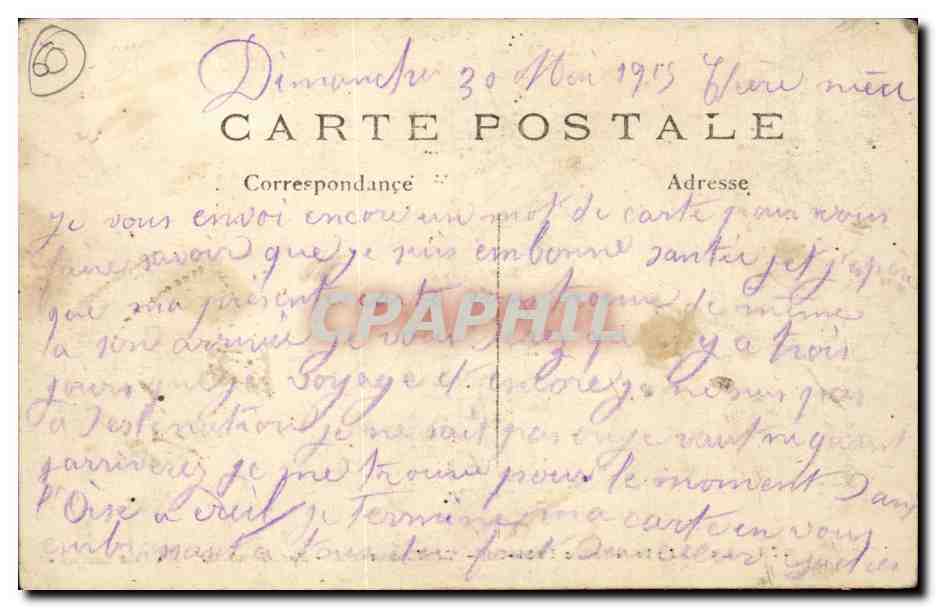 60
Dimanche 30 Mai 1915 Chère nièce
CARTE POSTALE
Correspondance Adresse
Je vous envoi encore un mot de carte pour vous
faire savoir que je suis en bonne santée et j'espère
que ma présent carte de même
a son arrivée je y a trois
jours que je voyage et encore je ne suis pas
a destination je ne sait pas ou je vaut ni quant
j'arriverez je me trouve pour le moment dans
l'Oise a Creil je termine ma carte en vous
embrassant a tous
CPAPHIL